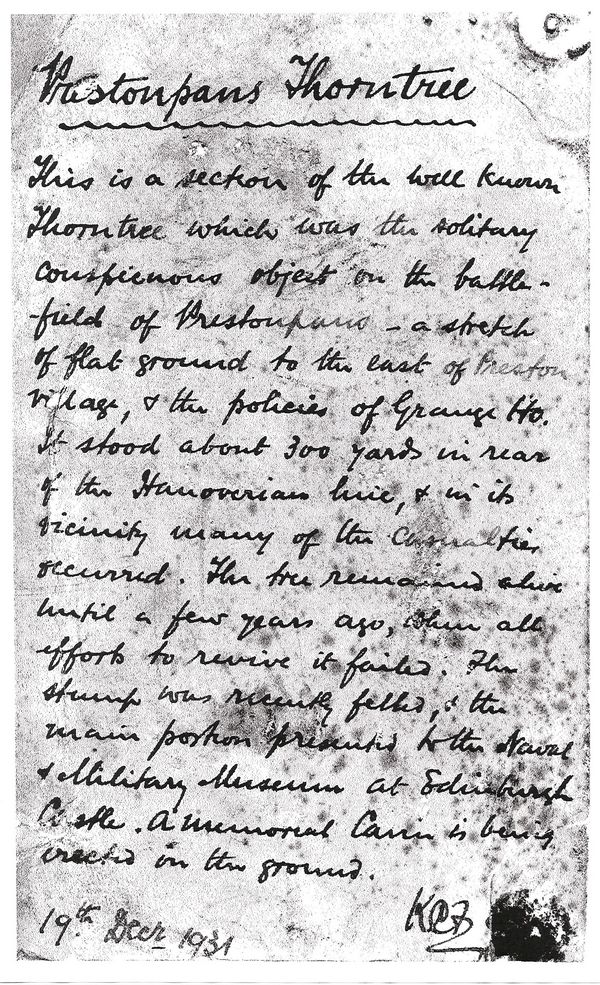 Prestonpans Thorntree
This is a section of the well known
Thorntree which was the solitary
conspicuous object on the battle-
field of Prestonpans – a stretch
of flat ground to the east of Preston
village, & the policies of Grange Ho.
It stood about 300 yards in rear
of the Hanoverian line, & in its
vicinity many of the casualties
occurred. The tree remained alive
until a few years ago, when all
efforts to revive it failed. The
stump was recently felled, & the
main portion presented to the Naval
& Military Museum at Edinburgh
Castle. A Memorial Cairn is being
erected on the ground.
19th Decr 1931